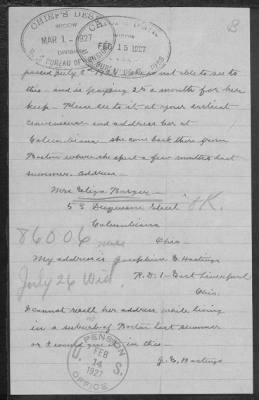 CHIEF'S DESK
WIDOW
MAR 1 - 1927
DIVISION
U.S. BUREAU OF PENSIONS
FEB 15 1927
B
passed July 2nd 1924 not able to see to
this - and is paying 25 a month for her
keep - Please see to it at your earliest
convenience and address her at
Columbiana - she came back there from
Boston where she spent a few months last
summer. Address -
Mrs Eliza Barger -
5 S Street OK.
Columbiana
Ohio -
86006
My address is Josephine E. Hastings
July 26 Wid.
R.D. 1 - East Liverpool
Ohio.
I cannot recall her address while living
in a suburb of Boston last summer
or I would give it in this -
J. E. Hastings
U.S. PENSION OFFICE
FEB
14
1927